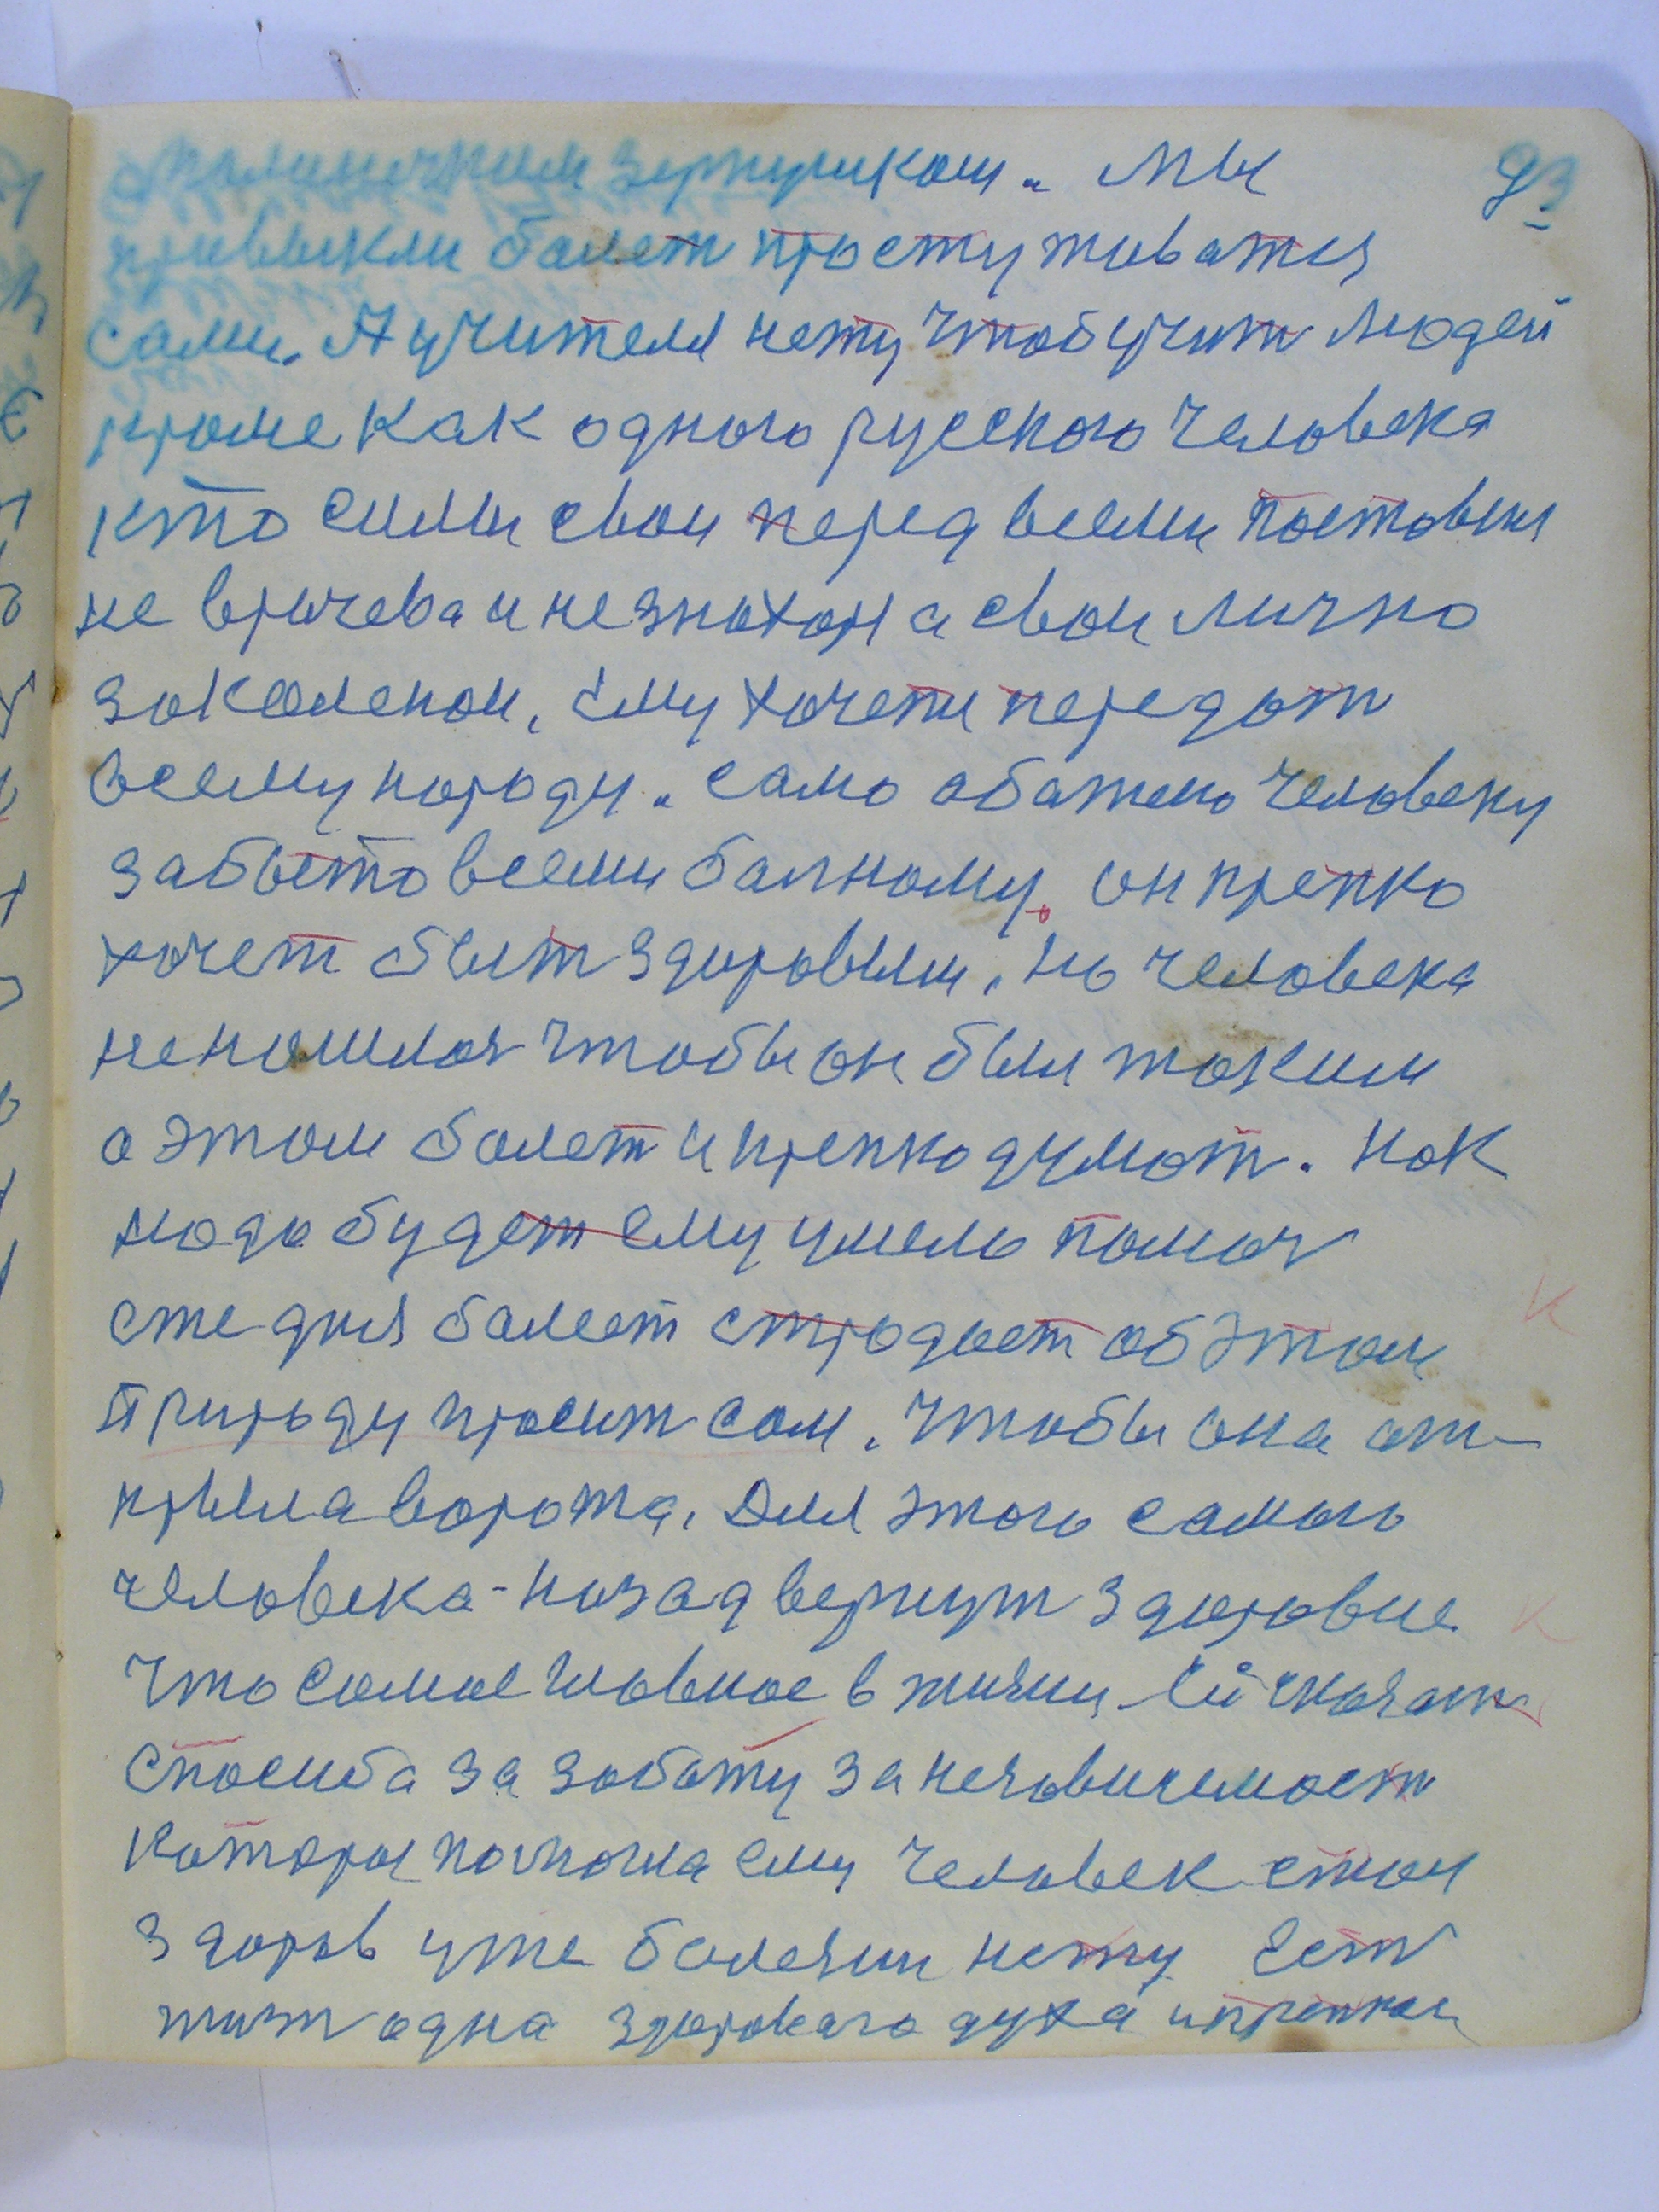 зернушком. Мы 93
привыкли болет простуживатся
сами. А учителя нету чтоб учит людей
кроме как одного русского человека
кто силы свои перед всеми поставил
не врачева и не знахоря а свои лично
закаленои, ему хочети передат
всему народу. само обажено человеку
забыто всеми балному. он крепко
хочет быт здоровым, но человека
не нашлос чтобы он был таким
о этом болет и крепко думат. как
надо будет ему умело помоч
еже дня болеет страдает об этом
природу просит сам. чтобы она от-
крыла ворота, для этого самого
человека - назад вернут здоровие
что самое главное в жизни. Ей сказат
спасиба за заботу за незавичемост
которы помогла ему человек стал
здоров уже болезни нету Ест
жизт одна здорового духа и крепкои